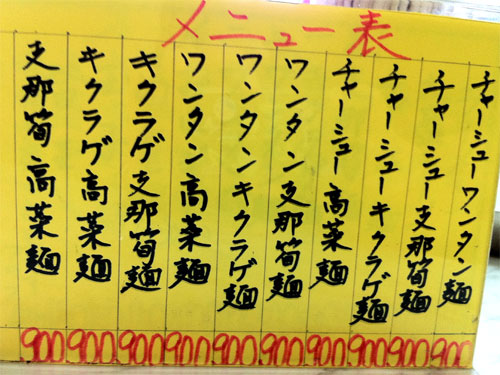 メニュー表
チャーシューワンタン麺
900
チャーシュー支那筍麺
900
チャーシューキクラゲ麺
900
チャーシュー高菜麺
900
ワンタン支那筍麺
900
ワンタンキクラゲ麺
900
ワンタン高菜麺
900
キクラゲ支那筍麺
900
キクラゲ高菜麺
900
支那筍高菜麺
900